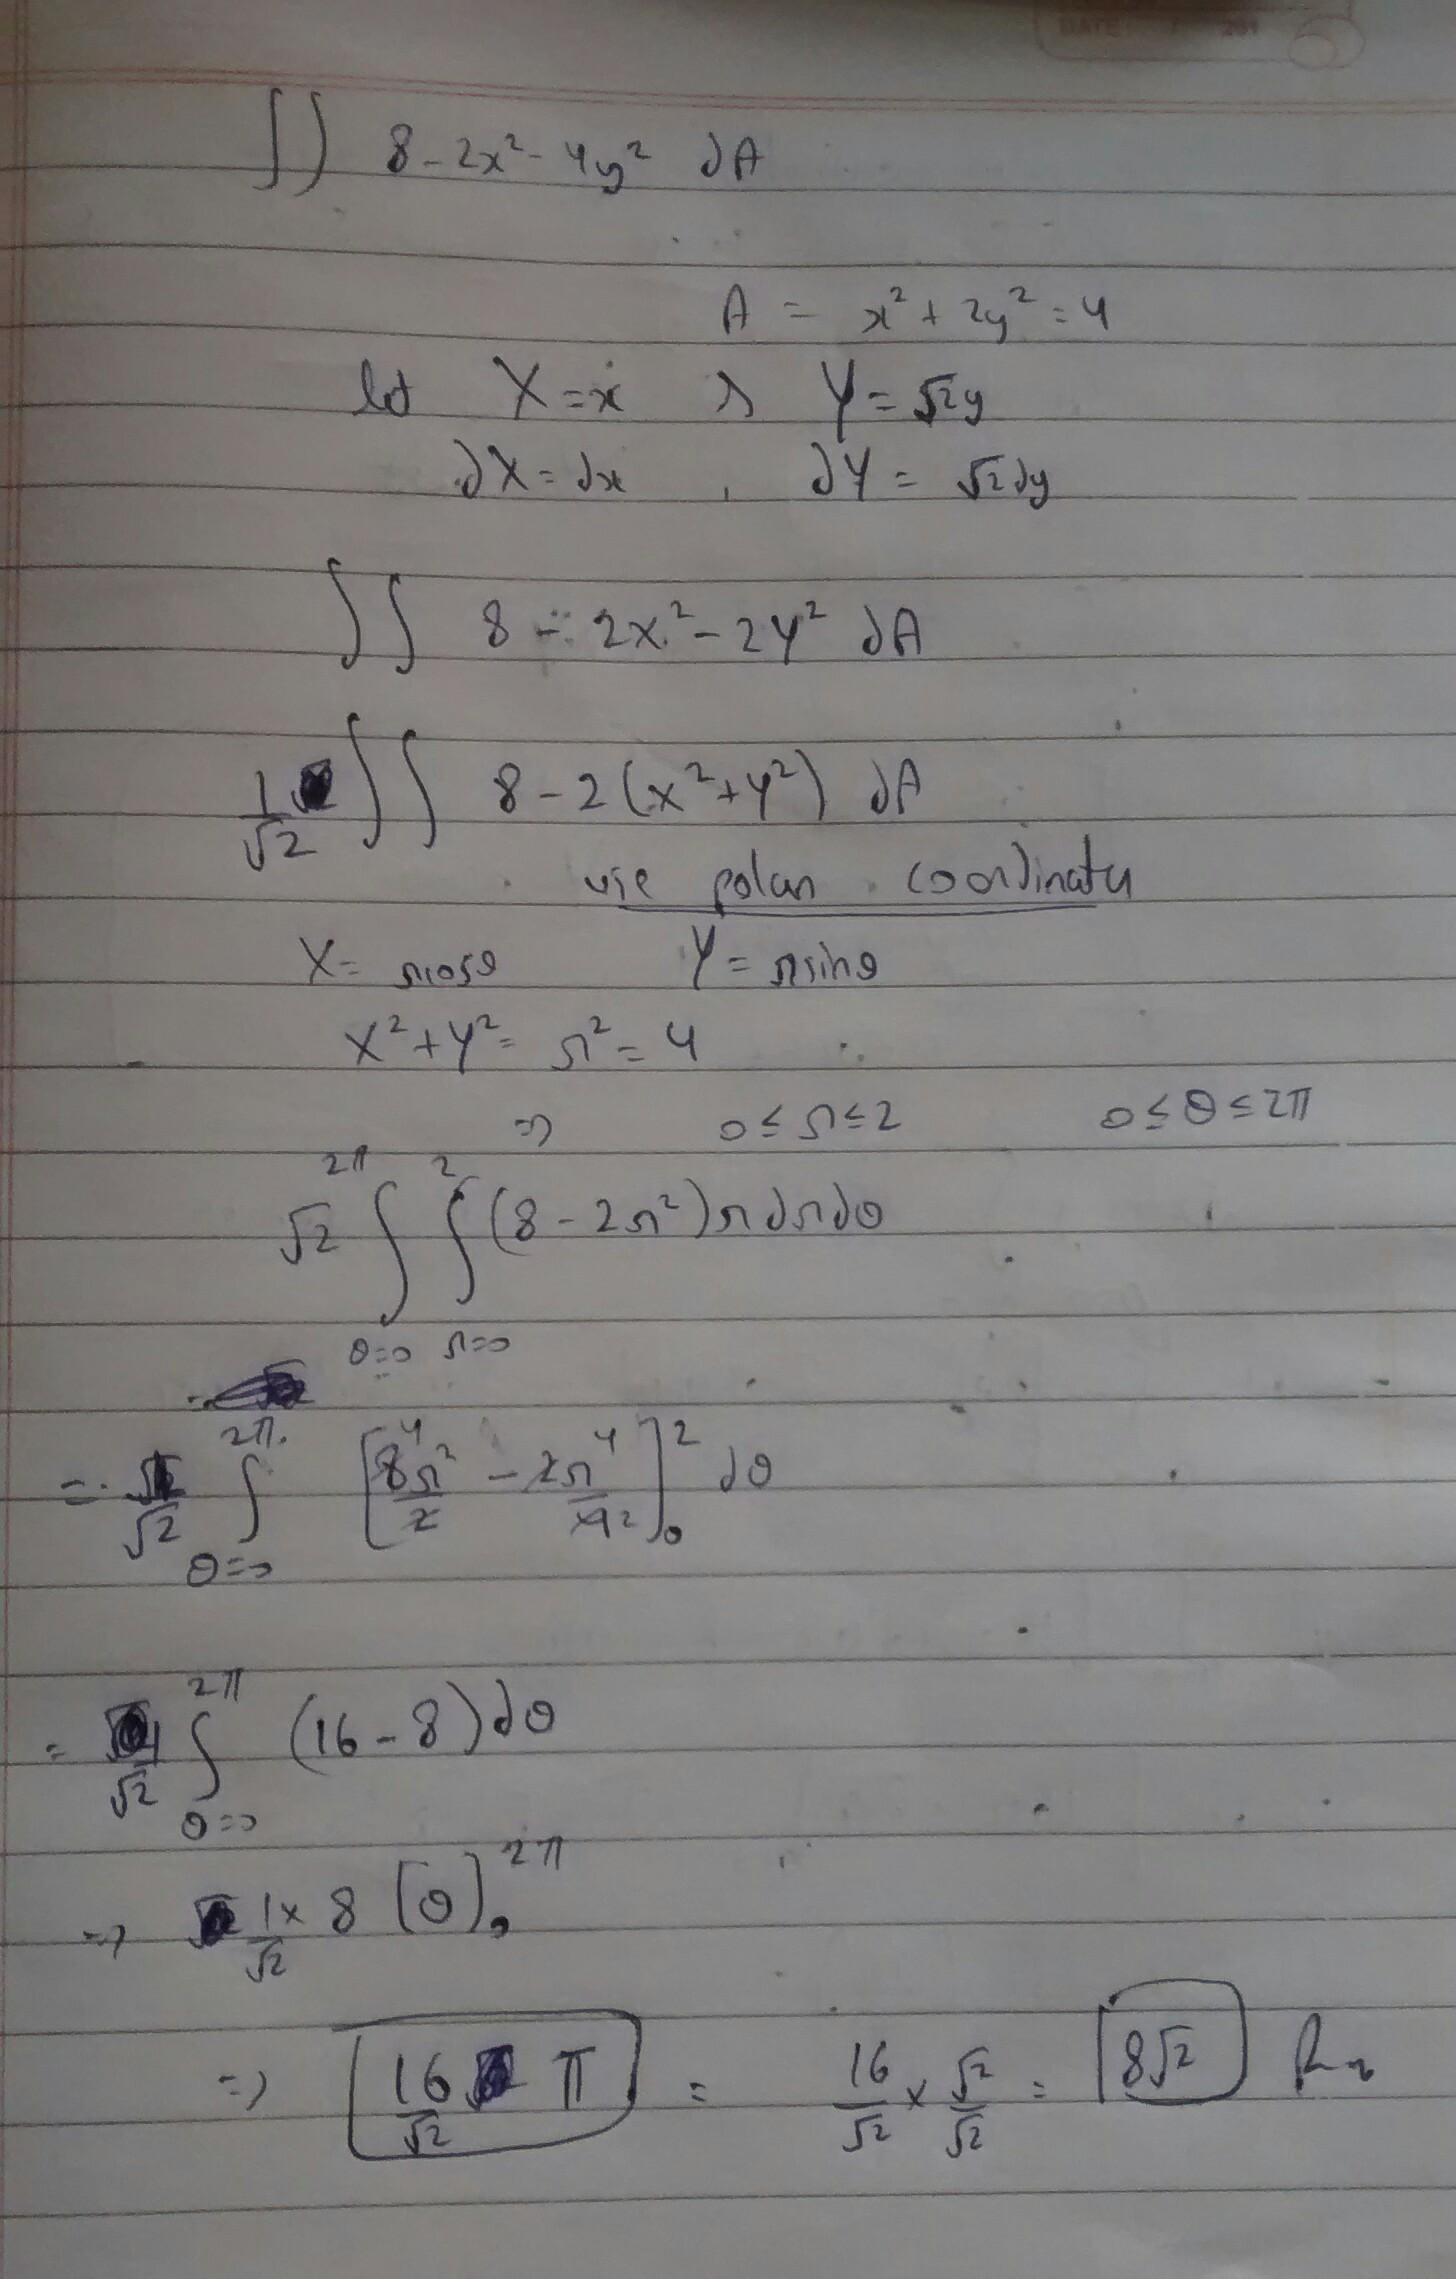 DATE 201
∫∫ 8-2x²-4y² dA
A = x²+2y²=4
let X=x , Y=√2y
dX=dx , dY=√2dy
∫∫ 8-2x²-2Y² dA
1/√2 ∫∫ 8-2(x²+Y²) dA
use polar coordinates
X= rcosθ Y=rsinθ
X²+Y²= r²=4
⇒ 0≤r≤2 0≤θ≤2π
√2 ∫_{θ=0}^{2π} ∫_{r=0}^{2} (8-2r²)rdrdθ
= 1/√2 ∫_{θ=0}^{2π} [8⁴r²/2 - 2r⁴/4 2]_0^2 dθ
= 1/√2 ∫_{θ=0}^{2π} (16-8)dθ
⇒ 1/√2 × 8 [θ]_0^{2π}
⇒ 16/√2 π = 16/√2 × √2/√2 = 8√2